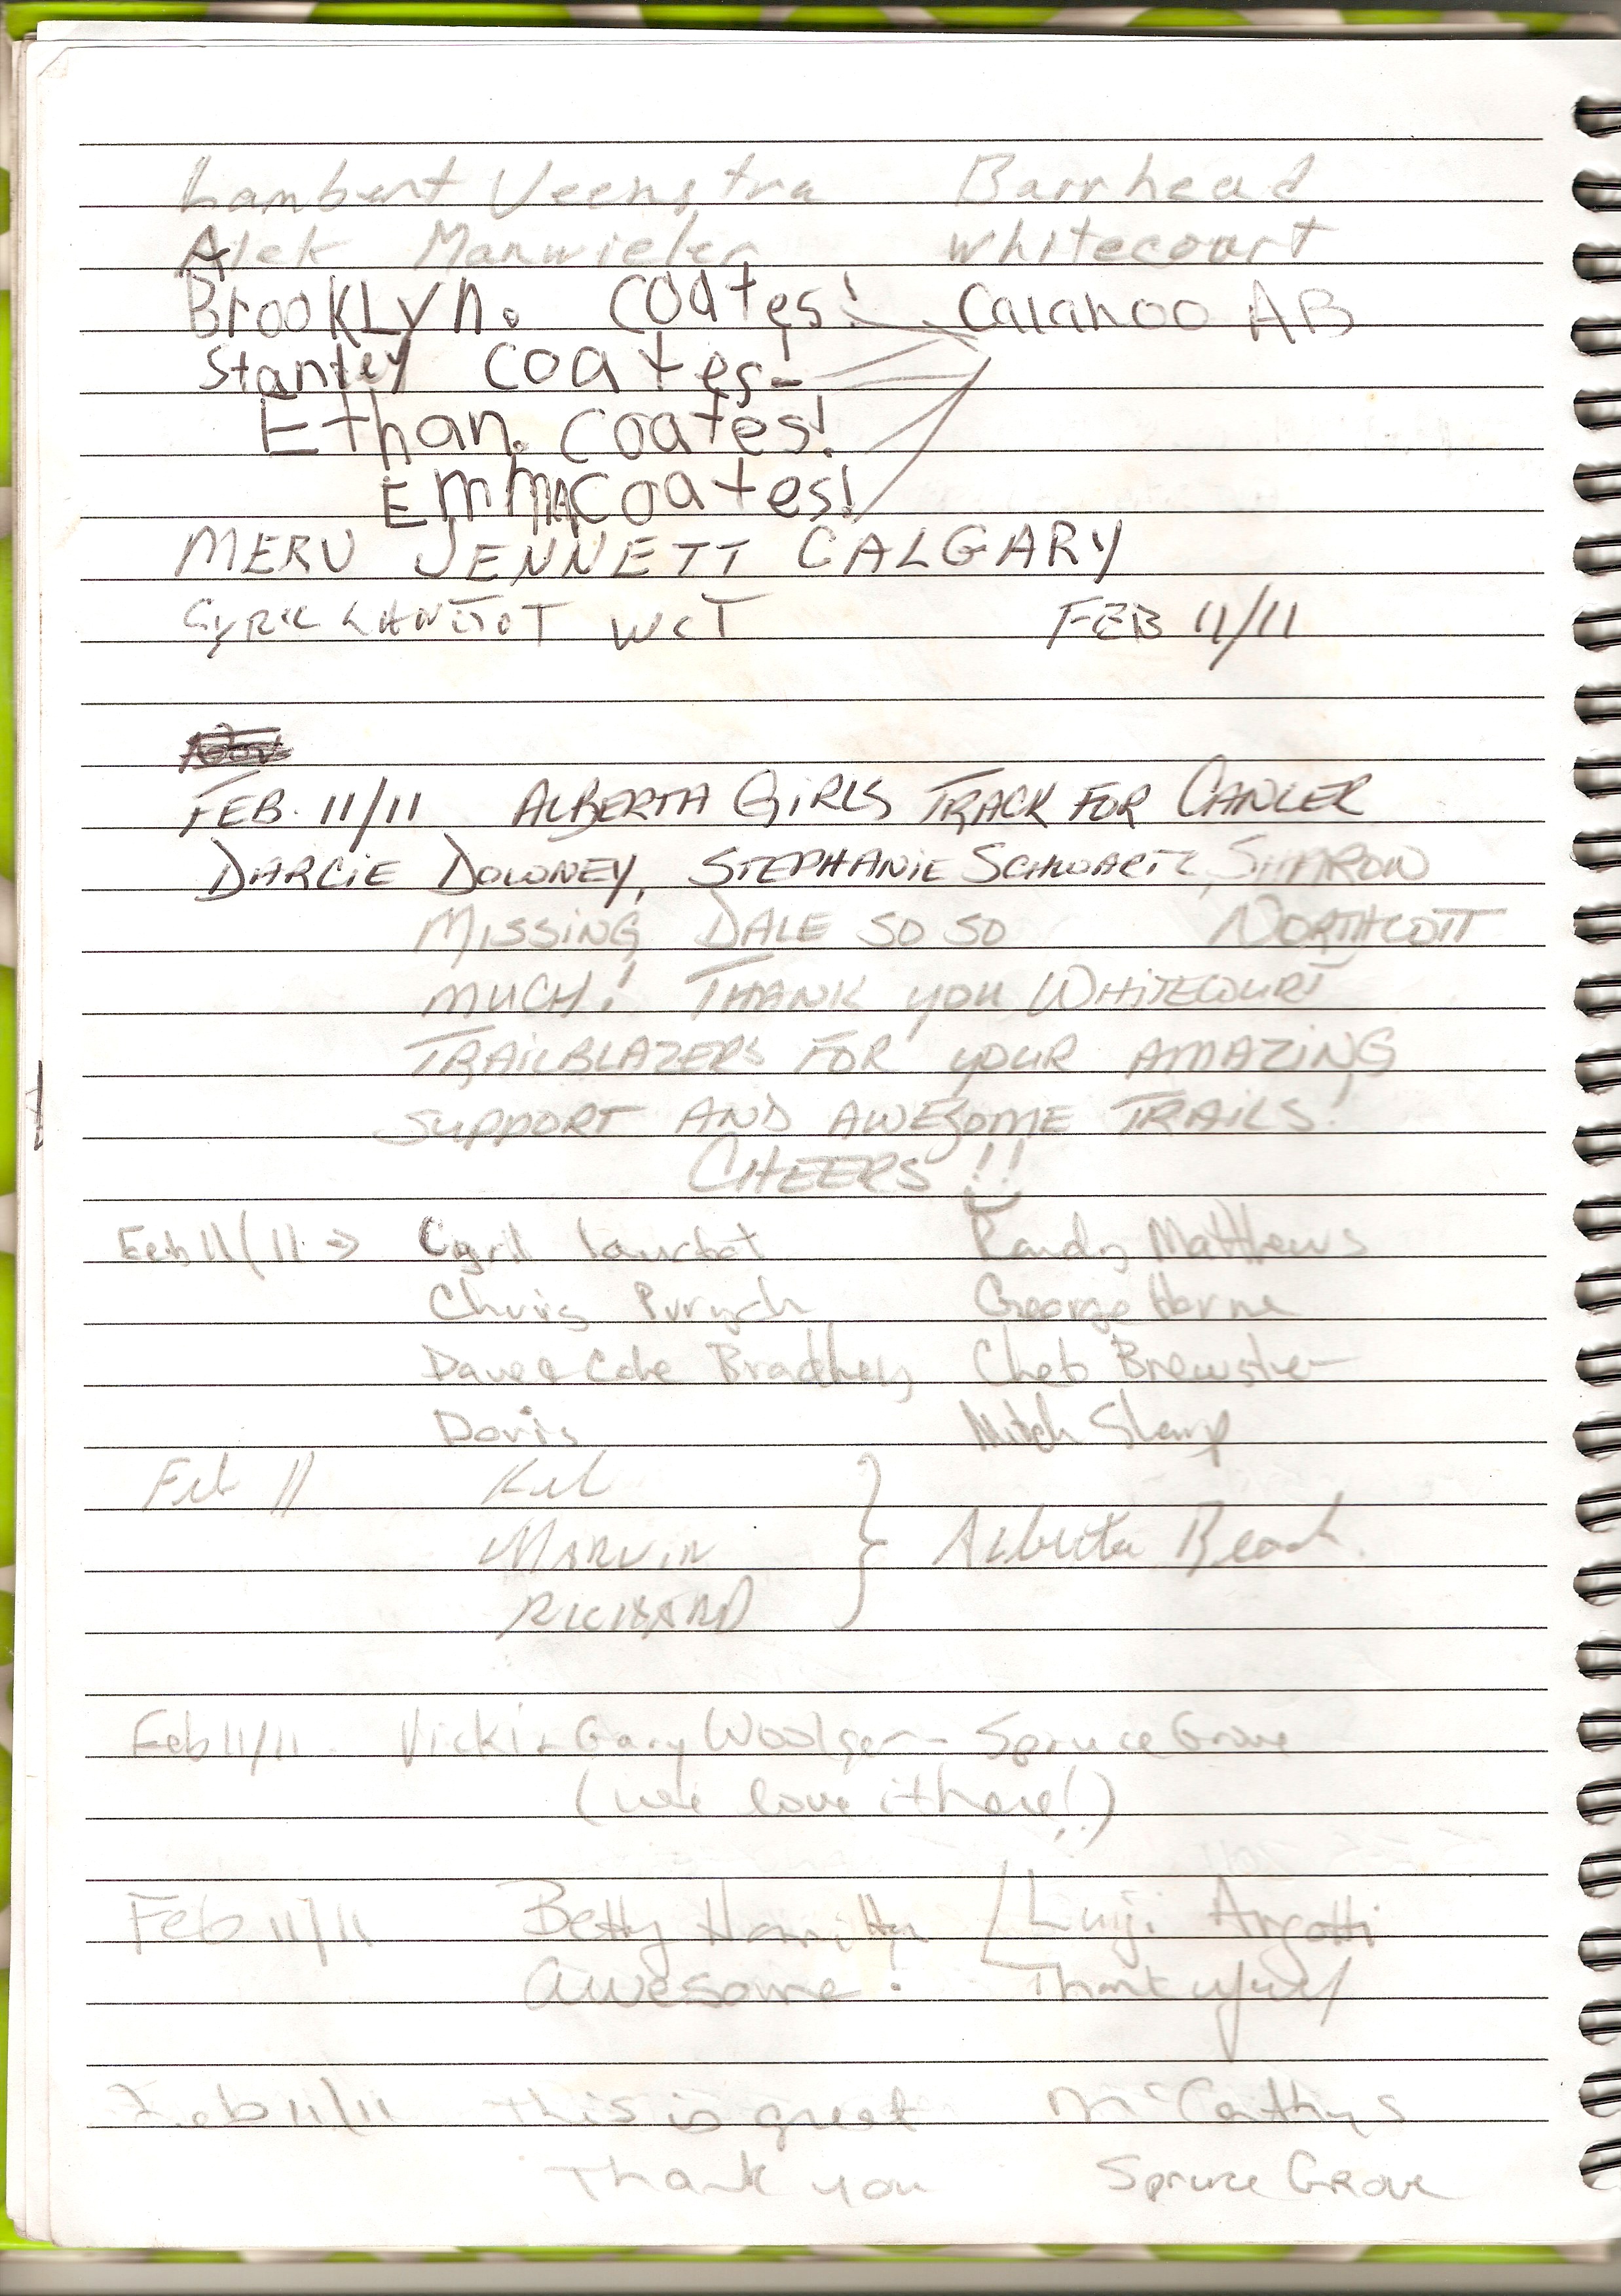 Lambert Veenstra Barrhead
Alek Manwieler Whitecourt
BrookLyn. coates! Calahoo AB
Stanley coates-
Ethan. coates!
Emma coates!
MERV JENNETT CALGARY
CYRIL WCT FEB 11/11
FEB. 11/11 ALBERTA GIRLS TRACK FOR CANCER
DARCIE DOWNEY, STEPHANIE SCHWARTZ, SHARON
MISSING DALE SO SO NORTHCOTT
MUCH! THANK YOU WHITECOURT
TRAILBLAZERS FOR YOUR AMAZING
SUPPORT AND AWESOME TRAILS!
CHEERS!!
Feb 11/11 → Cyril Randy Matthews
Chris Purych George Horne
Dave & Cole Bradley Brewster
Doris Mitch Sharp
Feb 11
MARVIN Alberta Beach
RICHARD
Feb 11/11 Vicki & Gary Woolger - Spruce Grove
(we love it here!!)
Feb 11/11 Betty Hamilton Luigi Argotti
awesome! Thank you!
Feb 11/11 This is great McCarthys
Thank you Spruce Grove